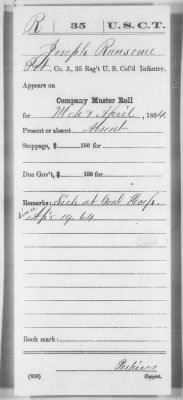 R 35 U.S.C.T.
Joseph Ransome
Pvt., Co. A, 35 Reg't U. S. Col'd Infantry.
Appears on
Company Muster Roll
for Mch & April, 1864.
Present or absent Absent
Stoppage, $ 100 for
Due Gov't, $ 100 for
Remarks: Sick at Genl Hosp.
since Apr. 19. 64
Book mark:
Perkins
(858) Copyist.